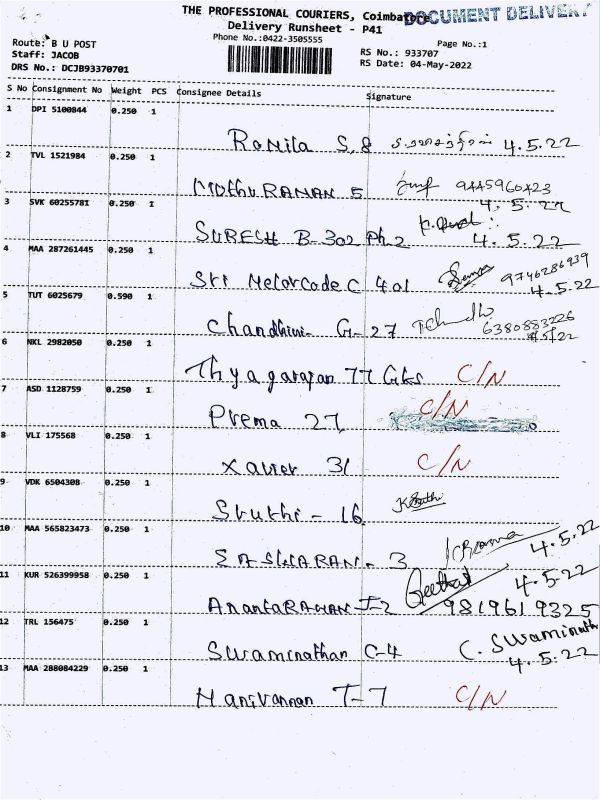 THE PROFESSIONAL COURIERS, Coimbatore
DOCUMENT DELIVERY
Delivery Runsheet - P41
Phone No.:0422-3505555
Route: B U POST
Staff: JACOB
DRS No.: DCJB93370701
Page No.:1
RS No.: 933707
RS Date: 04-May-2022
S No Consignment No Weight PCS Consignee Details Signature
1 DPI 5100844 0.250 1
Ramila S.8 4.5.22
2 TVL 1521984 0.250 1
MUTHURAMAN 5 9445960423
4.5.22
3 SVK 60255781 0.250 1
SURESH B-302 Ph2 4.5.22
4 MAA 287261445 0.250 1
Sri Melarcode C 401 9746286939
4.5.22
5 TUT 6025679 0.590 1
Chandhini- G-27 6380883226
4/5/22
6 NKL 2982050 0.250 1
Thyagarajan 77 C/N
7 ASD 1128759 0.250 1
Prema 27 C/N
8 VLI 175568 0.250 1
Xavier 31 C/N
9 VDK 6504308 0.250 1
Sruthi - 16
10 MAA 565823473 0.250 1
EASWARAN - 3 4.5.22
11 KUR 526399958 0.250 1
AnantaRAMAN J-2 Geetha 4.5.22
9819619325
12 TRL 156475 0.250 1
Swaminathan C-4 C. Swaminath
4.5.22
13 MAA 288084229 0.250 1
Manivannan T-7 C/N